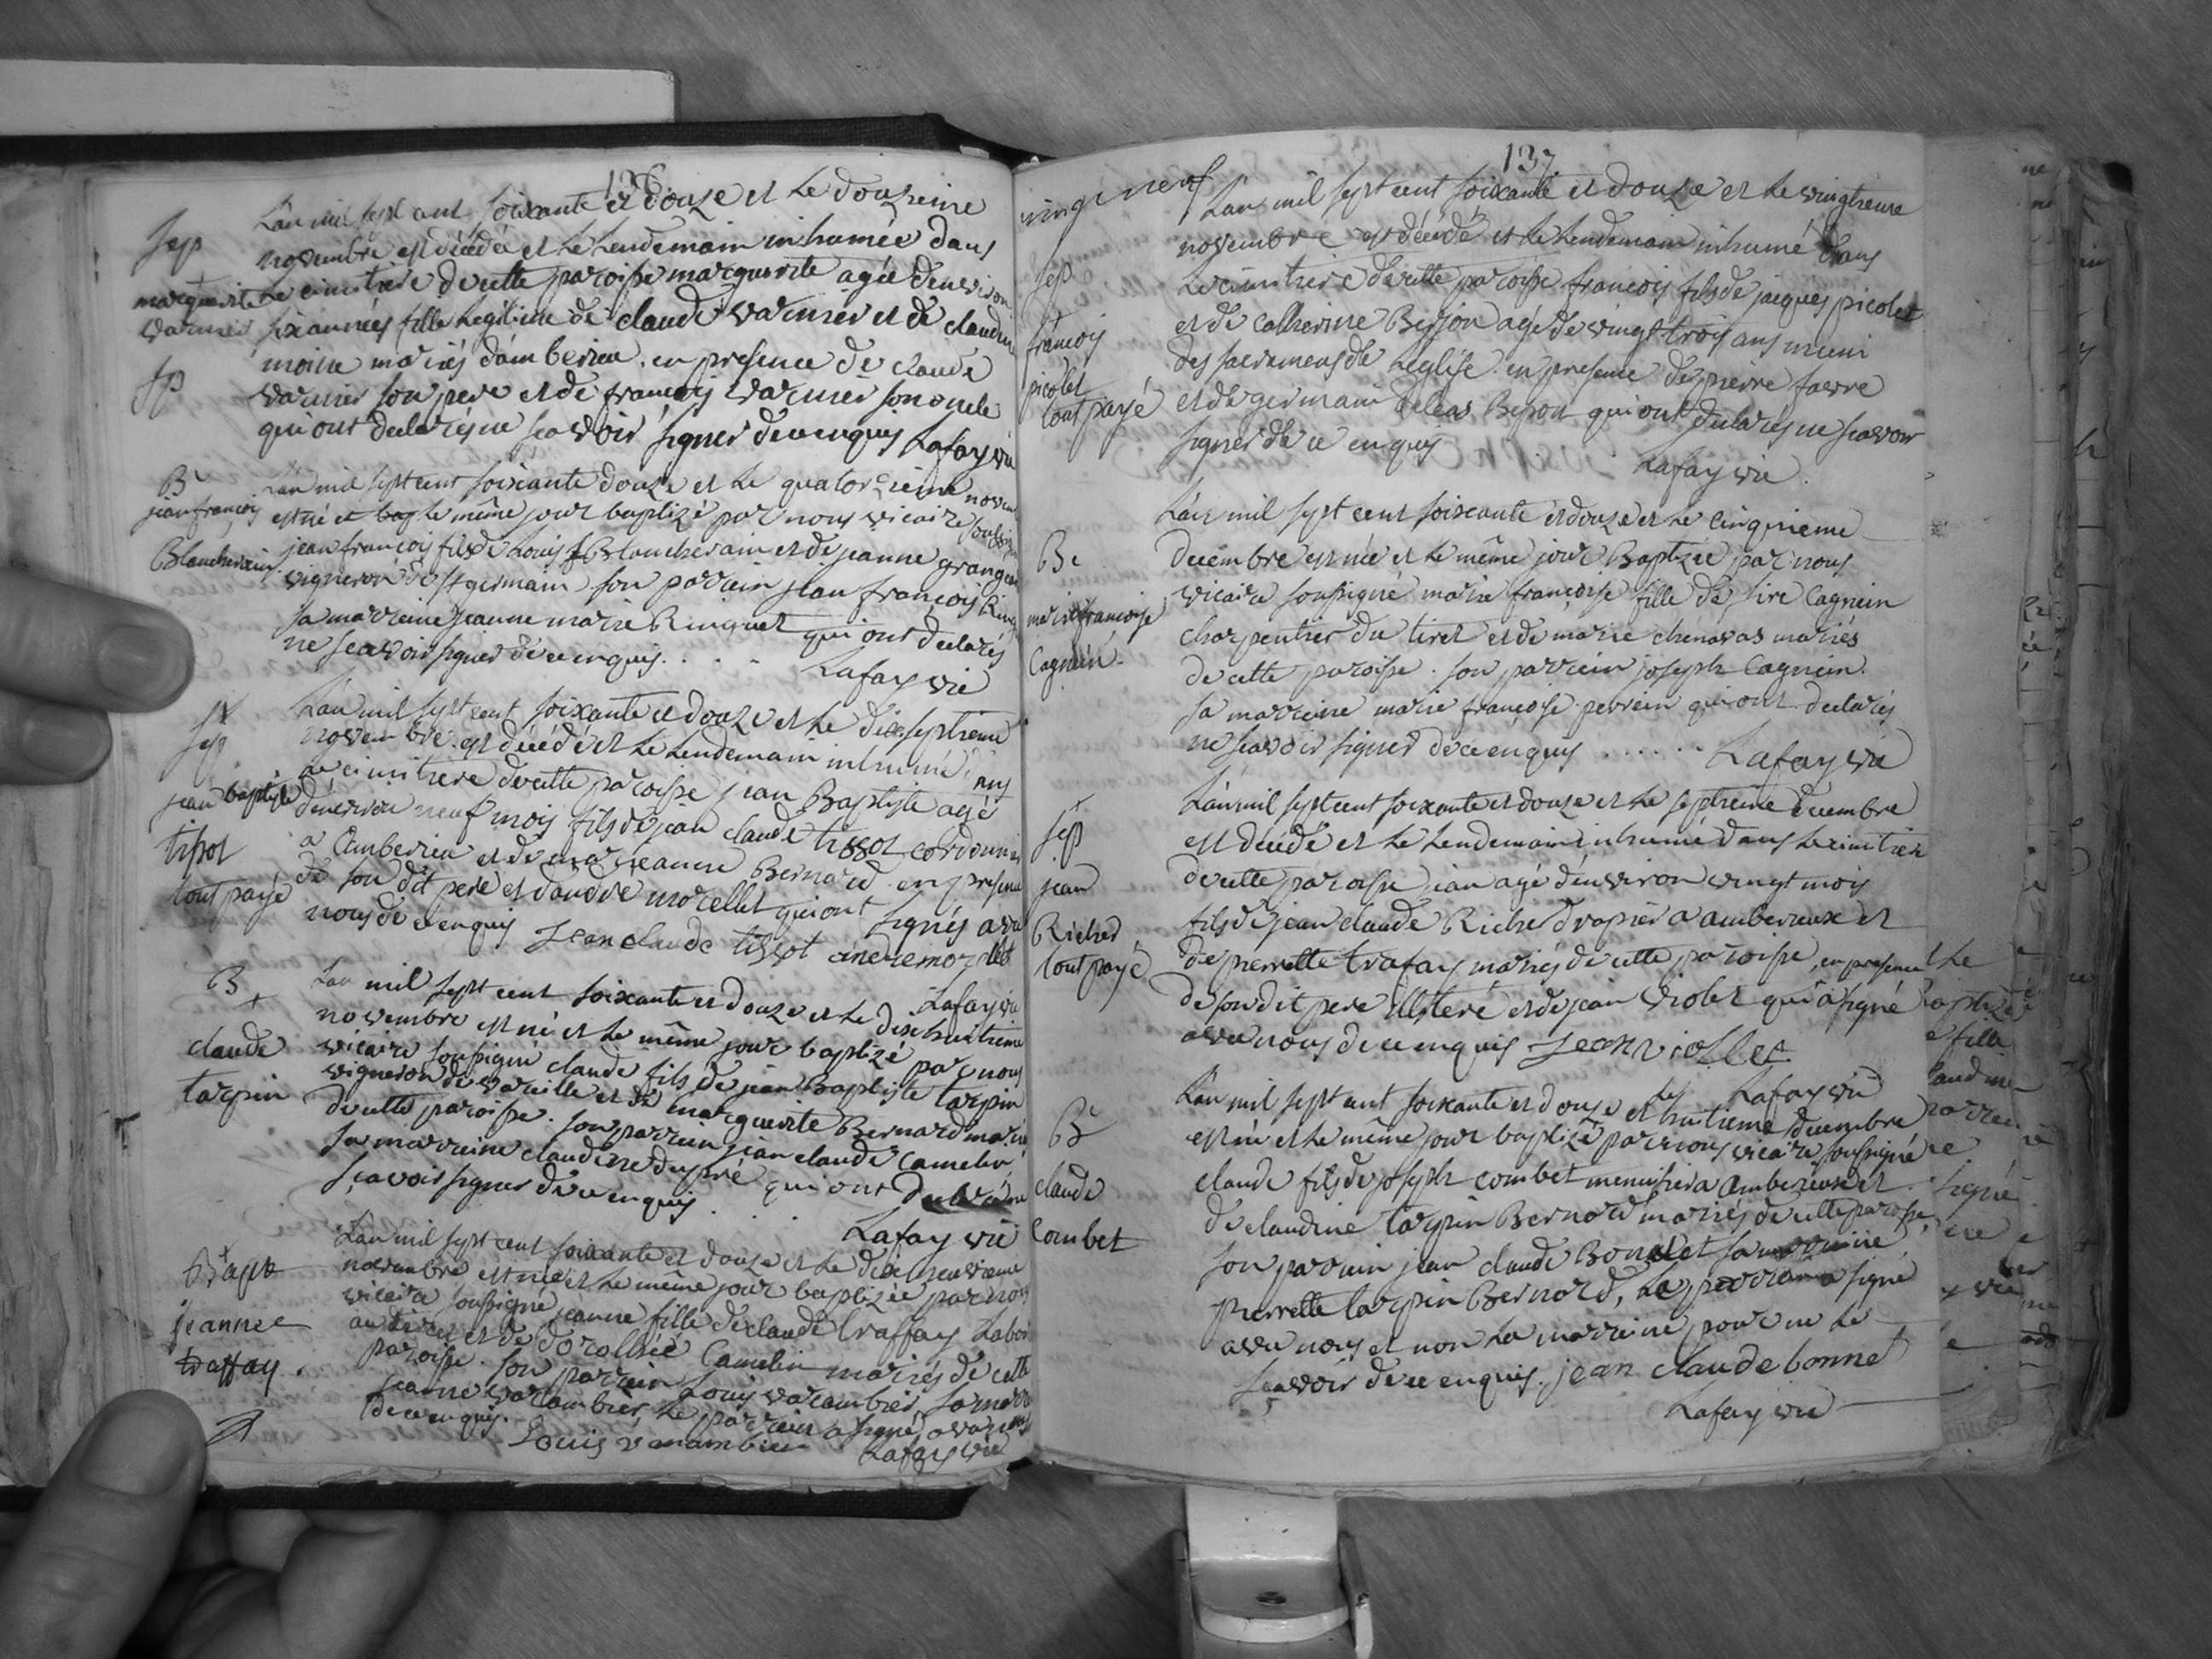 136
Sep
marguerite
varmier
Sp
L'an mil sept cent soixante et douze et le douzieme
novembre est décédée et le lendemain inhumée dans
le cimitiere de cette paroisse marguerite agée denviron
six années fille legitime de claude varmier et de claudine
moine mariés d'amberieu. en presence de claude
varmier son pere et de françois varmier son oncle
qui ont declarés ne scavoir signer de ce enquis Lafay vic
Be
jean françois
Blancherain
L'an mil sept cent soixante douze et le quatorzieme novem
est né et bap le même jour baptizé par nous vicaire soussigné
jean françois fils de Louis Blancherain et de jeanne grangeon
vigneron de st germain son parrein jean françois
sa marreine jeanne marie Ringuet qui ont declarés
ne scavoir signer de ce enquis. . . . Lafay vic
Sep
jean baptiste
tissot
tout payé
L'an mil sept cent soixante et douze et le dix septieme
novembre est décédé et le lendemain inhumé dans
le cimitiere de cette paroisse jean Baptiste agé
d'environ neuf mois fils de jean claude tissot cordonnier
a amberieu et de jeanne Bernard en presence
de son dit pere et d'andré morellet qui ont signés avec
nous de ce enquis Jean claude tissot andre morellet
Lafay vic
B
claude
tarpin
L'an mil sept cent soixante et douze et le dix huitieme
novembre est né et le même jour baptizé par nous
vicaire soussigné claude fils de jean Baptiste tarpin
vigneron de vareille et de marguerite Bernard mariés
de cette paroisse. son parrein jean claude Camelin
sa marreine claudine dupré qui ont declarés ne
scavoir signer de ce enquis . . . Lafay vic
Bapt
jeanne
traffay.
L'an mil sept cent soixante et douze et le dix neuvieme
novembre est née et le même jour baptizée par nous
vicaire soussigné jeanne fille de claude traffay Labou
au tiret et de dorothée Camelin mariés de cette
paroisse. son parrein Louis varambier, sa marreine
jeanne varambier, le parrein a signé avec nous
de ce enquis. Louis varambier Lafay vic
137
vingt neuf
Sep
françois
picolet
tout payé
L'an mil sept cent soixante et douze et le vingtieme
novembre est décédé et le lendemain inhumé dans
le cimitiere de cette paroisse françois fils de jacques picolet
et de catherine Berjon agé de vingt trois ans muni
des sacremens de l'eglise. en presence de pierre favre
et de germain qui ont declarés ne scavoir
signer de ce enquis Lafay vic.
Be
marie françoise
Cagnin.
L'an mil sept cent soixante et douze et le cinquieme
decembre est née et le même jour Baptizée par nous
vicaire soussigné marie françoise fille de sire Cagnin
charpentier du tiret et de marie chenavas mariés
de cette paroisse. son parrein joseph Cagnin.
sa marreine marie françoise perrein qui ont declarés
ne scavoir signer de ce enquis . . . . . . Lafay vic
Sep
jean
Richer
tout payé
L'an mil sept cent soixante et douze et le septieme decembre
est décédé et le lendemain inhumé dans le cimitiere
de cette paroisse jean agé d'environ vingt mois
fils de jean claude Riche drapier a amberieux et
de pierrette trafay mariés de cette paroisse, en presence
de son dit pere illiteré et de jean violet qui a signé
avec nous de ce enquis Jean viollet
Lafay vic
Be
claude
Combet
L'an mil sept cent soixante et douze et le huitieme decembre
est né et le même jour baptizé par nous vicaire soussigné
claude fils de joseph combet menuisier a amberieux et
de claudine tarpin Bernard mariés de cette paroisse,
son parrein jean claude Bonnet sa marreine
pierrette tarpin Bernard, le parrein a signé
avec nous et non la marreine pour ne le
scavoir de ce enquis. jean claude bonnet
Lafay vic